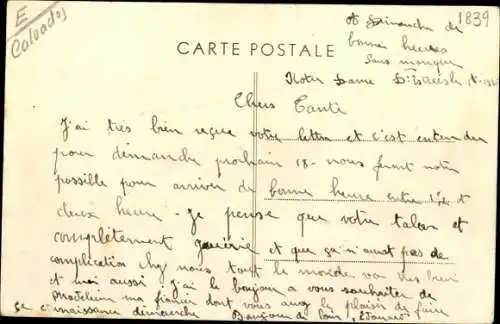 E
Calvados
1839
à Dimanche de
bonne heure
sans manquer
CARTE POSTALE
Notre Dame D'
Chers Tante
J'ai très bien reçue votre lettre et c'est entendu
pour dimanche prochain 18 - nous feront notre
possible pour arriver de bonne heure entre 1h et
deux heure - Je pense que votre talon et
complètement guérie et que ça n'aurat pas de
complication chez nous tout le monde va très bien
et moi aussi j'ai le bonjour a vous souhaiter de
ma dont vous aurez le plaisir de faire
sa connaissance dimanche Bonjour de loin, Edouard